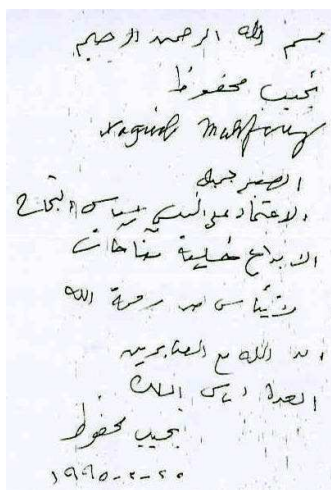 بسم الله الرحمن الرحيم
نجيب محفوظ
Naguib Mahfouz
الصبر جميل
الاعتماد على النفس أساس النجاح
الابداع خليفة
لا تيأس من رحمة الله
ان الله مع الصابرين
العدل أساس الملك
نجيب محفوظ